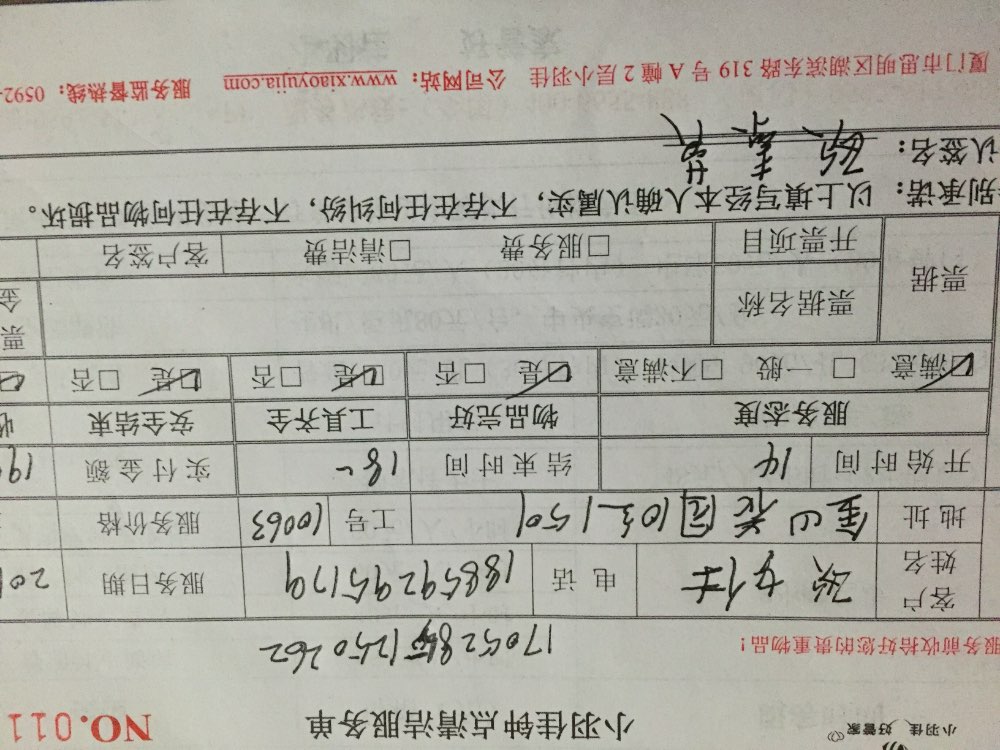 小羽佳 好管家
小羽佳钟点清洁服务单 NO.011
服务前收拾好您的贵重物品！ 1705284512150262
客户姓名 女仕 电话 18859295179 服务日期 201
地址 金山花园103 1501 工号 10063 服务价格
开始时间 14 结束时间 18 实付金额 19
服务态度 物品完好 工具齐全 安全结束
☑满意 □一般 □不满意 ☑是 □否 ☑是 □否 ☑是 □否
票据 票据名称 票
金
开票项目 □服务费 □清洁费 客户签名
别承诺：以上填写经本人确认属实，不存在任何纠纷，不存在任何物品损坏。
认签名：
厦门市思明区湖滨东路 319 号 A 幢 2 层小羽佳 公司网站：www.xiaoyujia.com 服务监督热线：0592-